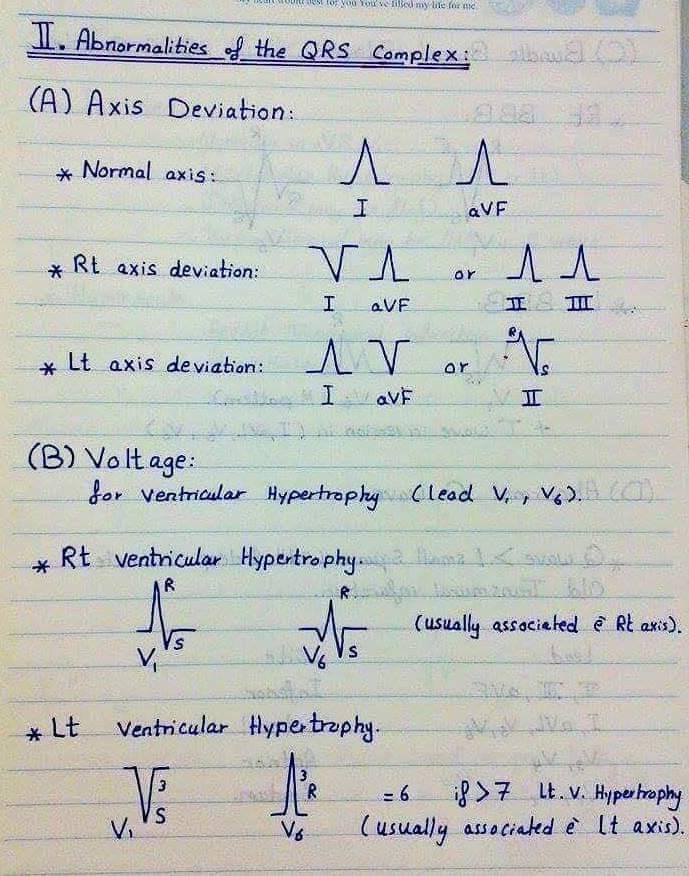 my heart would best for you You've filled my life for me.
II. Abnormalities of the QRS Complex:
(A) Axis Deviation:
* Normal axis:
I aVF
* Rt axis deviation: or
I aVF II III
* Lt axis deviation: or R S
I aVF II
(B) Voltage:
for ventricular Hypertrophy (lead V1, V6).
* Rt ventricular Hypertrophy.
R R
S S (usually associated ē Rt axis).
V1 V6
* Lt Ventricular Hypertrophy.
3 3
S R = 6 if > 7 Lt. V. Hypertrophy
V1 V6 (usually associated ē Lt axis).